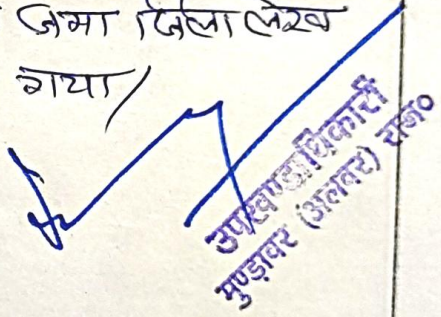 जमा जिला लेख
गया/
उपखण्डाधिकारी
मुण्डावर (अलवर) राज०